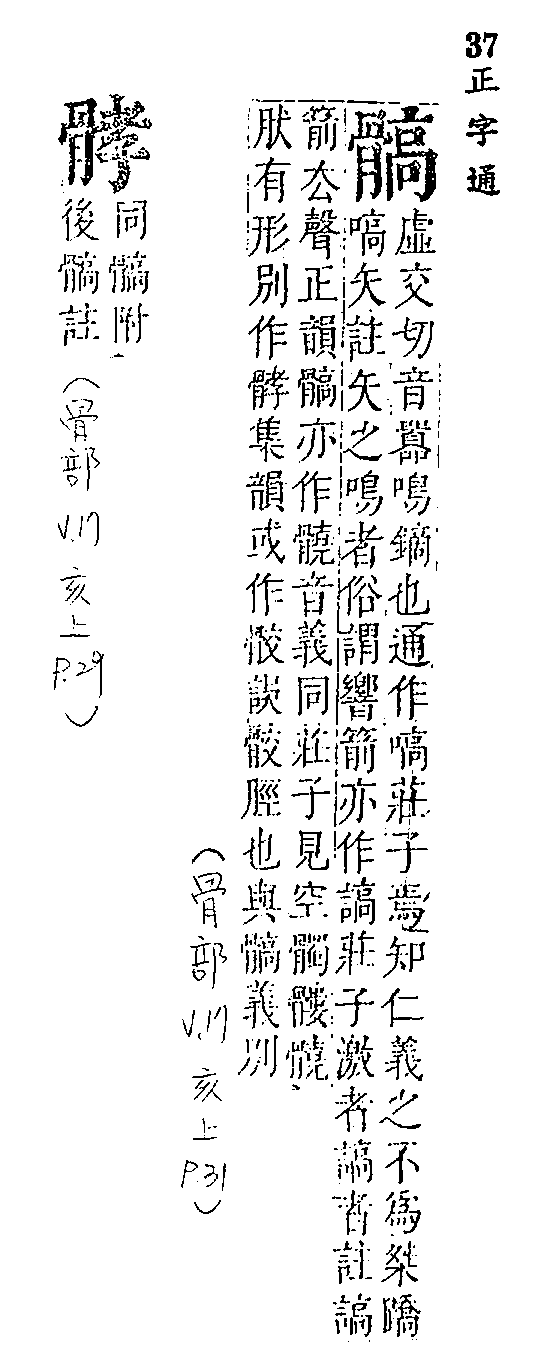 37正字通
髇
虛交切音囂鳴鏑也通作嚆莊子焉知仁義之不爲桀蹻
嚆矢註矢之鳴者俗謂響箭亦作謞莊子激者謞者註謞
箭厺聲正韻髇亦作髐音義同莊子見空髑髏髐
肰有形別作髉集韻或作骹𧧼骹脛也與髇義別
(骨部 V.17 亥上 P.31)
髉
同髇附
後髇註
(骨部 V.17 亥上 P.29)